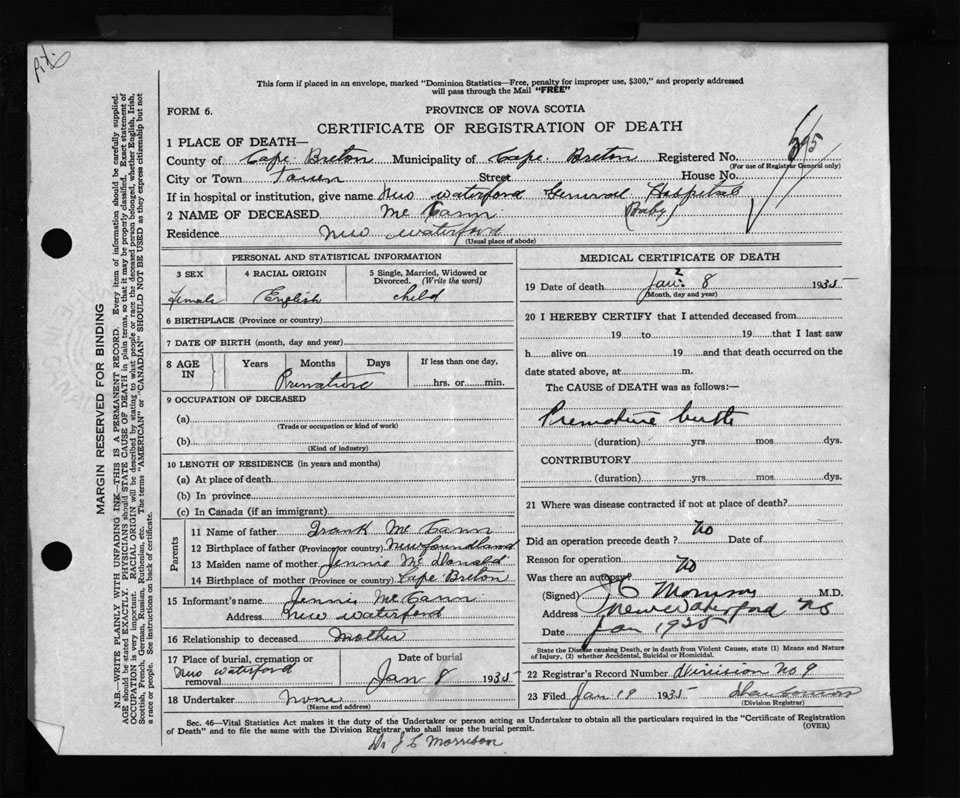 This form if placed in an envelope, marked "Dominion Statistics—Free, penalty for improper use, $300," and properly addressed
will pass through the Mail "FREE"
FORM 6.
PROVINCE OF NOVA SCOTIA
CERTIFICATE OF REGISTRATION OF DEATH
1 PLACE OF DEATH—
County of Cape Breton Municipality of Cape Breton Registered No. 395
(For use of Registrar General only)
City or Town Town Street House No.
If in hospital or institution, give name New Waterford General Hospital
2 NAME OF DECEASED Mc Cann (Baby)
Residence New Waterford
(Usual place of abode)
PERSONAL AND STATISTICAL INFORMATION
3 SEX
Female
4 RACIAL ORIGIN
English
5 Single, Married, Widowed or
Divorced. (Write the word)
child
6 BIRTHPLACE (Province or country)
7 DATE OF BIRTH (month, day and year)
8 AGE
IN
Years Months Days
Premature
If less than one day,
hrs. or min.
9 OCCUPATION OF DECEASED
(a)
(Trade or occupation or kind of work)
(b)
(Kind of industry)
10 LENGTH OF RESIDENCE (in years and months)
(a) At place of death
(b) In province
(c) In Canada (if an immigrant)
Parents
11 Name of father Frank Mc Cann
12 Birthplace of father (Province or country) Newfoundland
13 Maiden name of mother Jennie Mc Donald
14 Birthplace of mother (Province or country) Cape Breton
15 Informant's name Jennie Mc Cann
Address New Waterford
16 Relationship to deceased Mother
17 Place of burial, cremation or
removal New Waterford
Date of burial
Jan 8 1935
18 Undertaker None
(Name and address)
MEDICAL CERTIFICATE OF DEATH
2
19 Date of death Jan. 8 1935
(Month, day and year)
20 I HEREBY CERTIFY that I attended deceased from
19 to 19 that I last saw
h alive on 19 and that death occurred on the
date stated above, at m.
The CAUSE of DEATH was as follows:—
Premature birth
(duration) yrs mos dys.
CONTRIBUTORY
(duration) yrs mos dys.
21 Where was disease contracted if not at place of death?
Did an operation precede death? no Date of
Reason for operation
Was there an autopsy? no
(Signed) J C Morrison M.D.
Address New Waterford NS
Date Jan 1935
State the Disease causing Death, or in death from Violent Causes, state (1) Means and Nature
of Injury, (2) whether Accidental, Suicidal or Homicidal.
22 Registrar's Record Number Division No 9
23 Filed Jan 19 1935
(Division Registrar)
Sec. 46—Vital Statistics Act makes it the duty of the Undertaker or person acting as Undertaker to obtain all the particulars required in the "Certificate of Registration
of Death" and to file the same with the Division Registrar who shall issue the burial permit.
(OVER)
Dr J C Morrison
MARGIN RESERVED FOR BINDING
N.B.—WRITE PLAINLY WITH UNFADING INK—THIS IS A PERMANENT RECORD. Every item of information should be carefully supplied.
AGE should be stated EXACTLY. PHYSICIANS should STATE CAUSE OF DEATH in plain terms, so that it may be properly classified. Exact statement of
OCCUPATION is very important. RACIAL ORIGIN will be described by stating to what people or race the deceased person belonged, whether English, Irish,
Scottish, French, German, Russian, Ruthenian, etc. The terms "AMERICAN" or "CANADIAN" SHOULD NOT BE USED as they express citizenship but not
a race or people. See instructions on back of certificate.